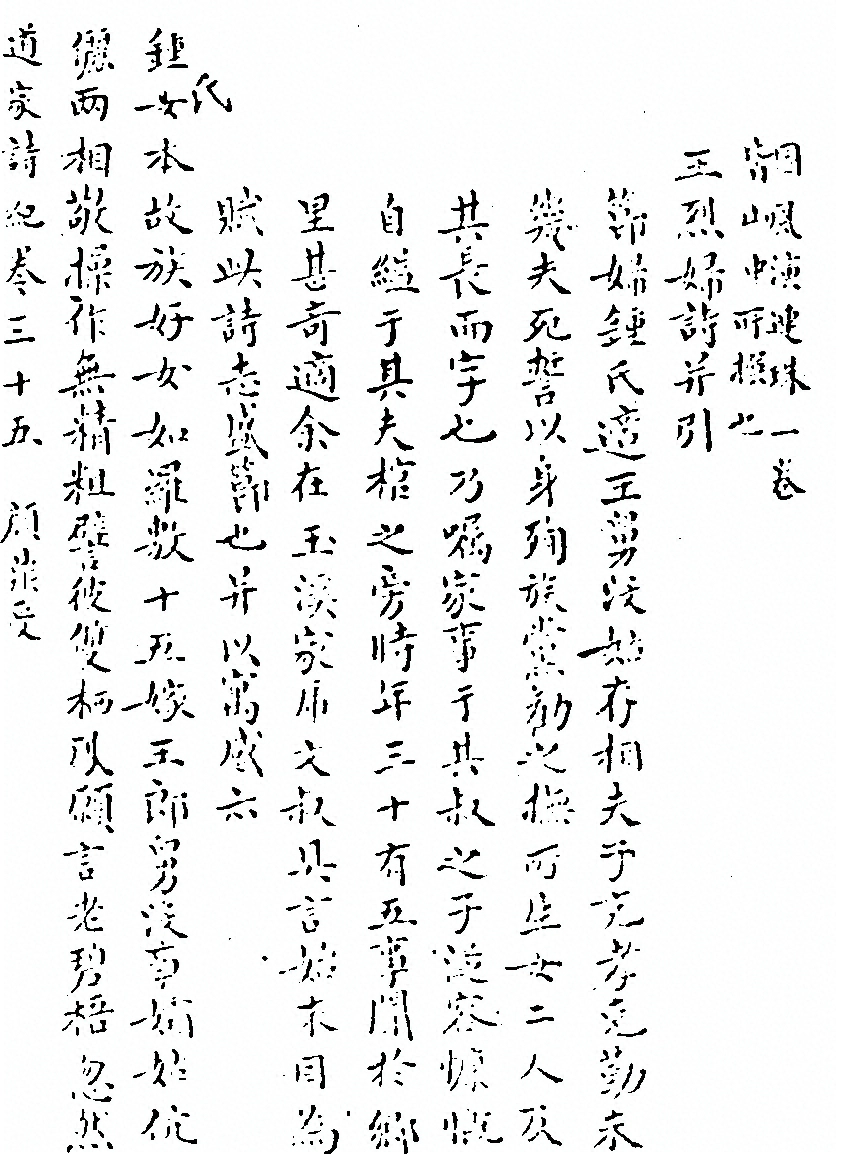 國風演連珠一卷
皆山中所撰也
王烈婦詩并引
節婦鍾氏適王舅沒姑存相夫子克孝克勤未
幾夫死誓以身殉族黨勸之撫所生女二人及
其長而字也乃囑家事于其叔之子從容慷慨
自縊于其夫棺之旁時年三十有五事聞於鄉
里甚奇適余在玉溪家席文叔具言始末因為
賦此詩志盛節也并以寓感云
鍾氏女本故族好女如羅敷十五嫁王郎舅沒事孀姑伉
儷兩相敬操作無精粗譬彼雙栖隹願言老碧梧忽然
道家詩紀卷三十五 顧